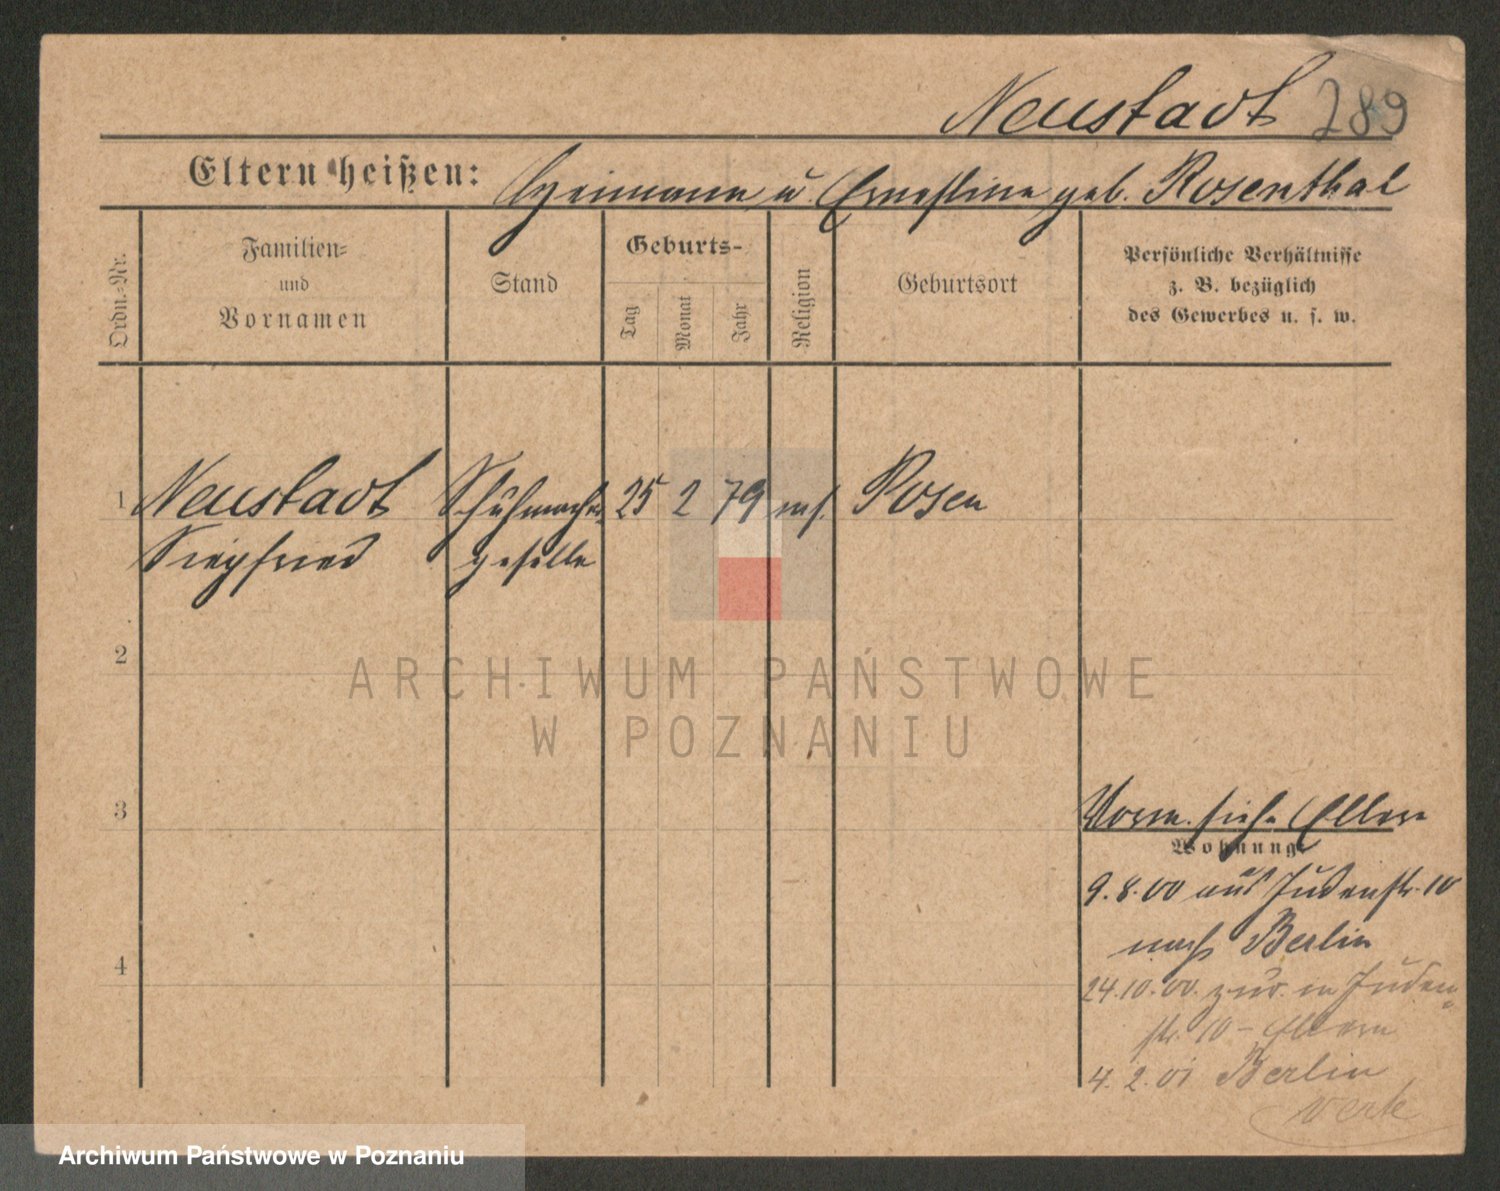 Neustadt 289
Eltern heißen: Heimann u. Ernestine geb. Rosenthal
Ordn.-Nr.
Familien-
und
Vornamen
Stand
Geburts-
Tag
Monat
Jahr
Religion
Geburtsort
Persönliche Verhältnisse
z. B. bezüglich
des Gewerbes u. s. w.
1 Neustadt Schuhmacher 25 2 79 mos. Posen
Siegfried geselle
2
ARCHIWUM PAŃSTWOWE
W POZNANIU
3
Vorm. siehe Eltern
Wohnung
9.8.00 aus Judenstr. 10
nach Berlin
4
24.10.00. zur. in Juden
str. 10 - Eltern
4. 2. 01 Berlin
Archiwum Państwowe w Poznaniu